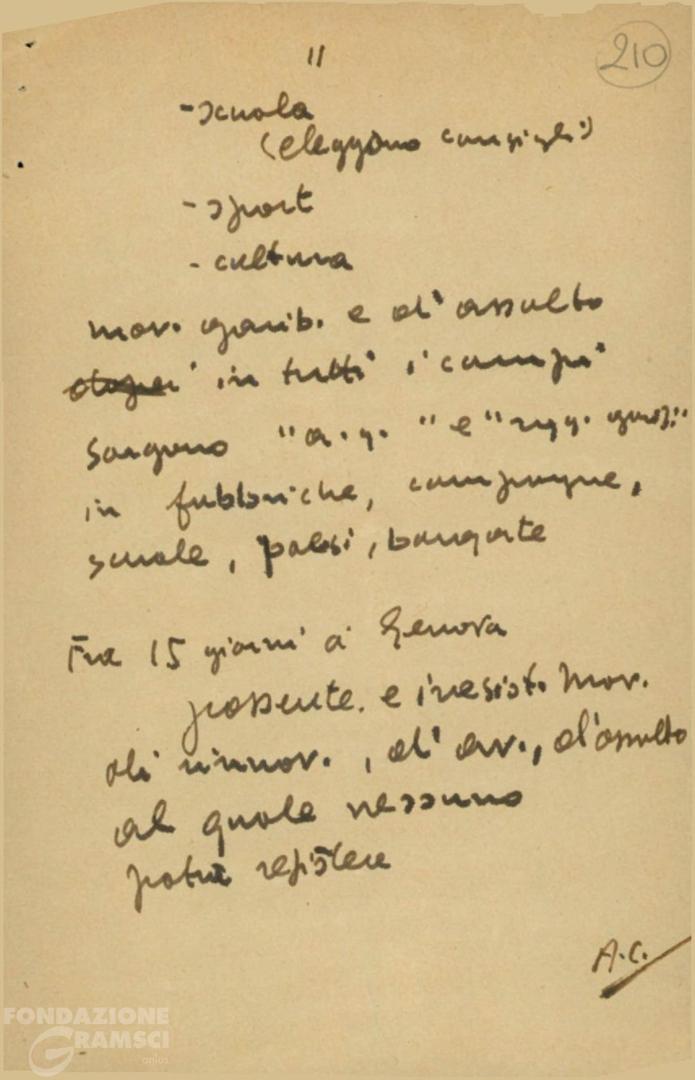 11
210
- scuola
(eleggono consigli)
- sport
- cultura
mov. garib. e d'assalto
in tutti i campi
Sorgono "a.g." e "
in fabbriche, campagne,
scuole, paesi, borgate
Fra 15 giorni a Genova
possente. e irresist. mov.
di rinnov., di av., d'assalto
al quale nessuno
potrà resistere
A.C.
FONDAZIONE
GRAMSCI
onlus